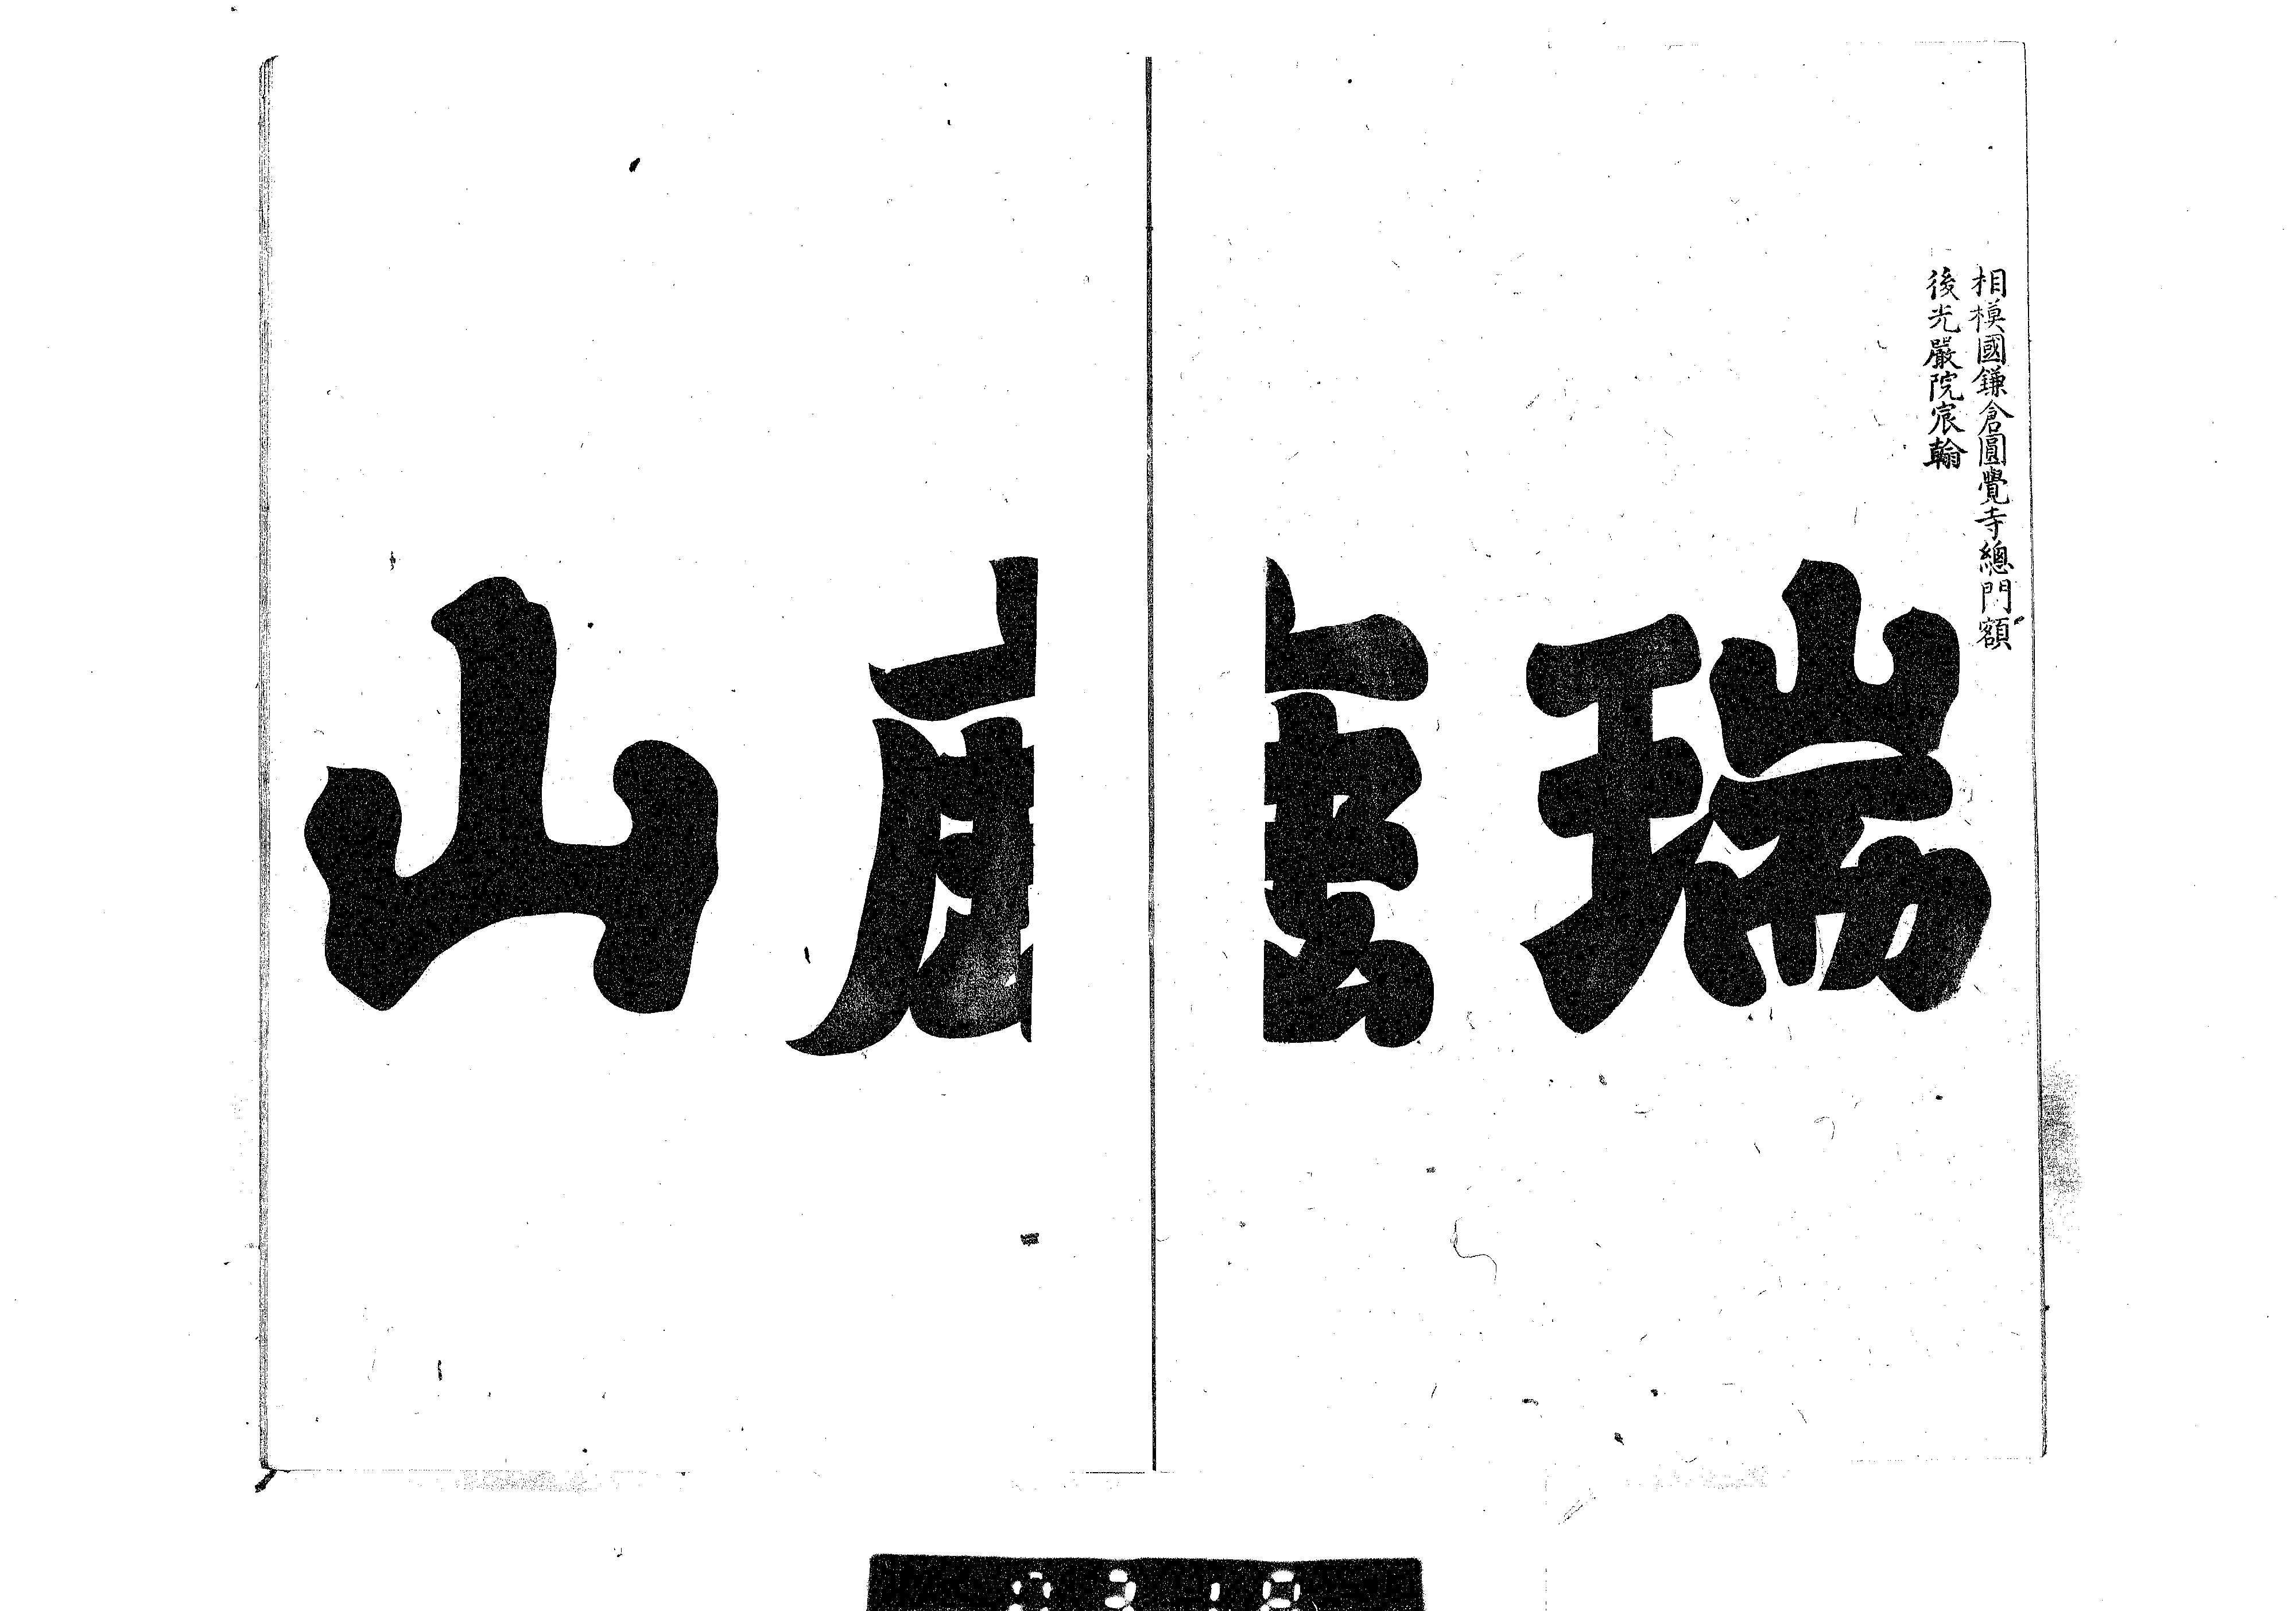 相模國鎌倉圓覺寺總門額
後光嚴院宸翰
瑞鹿山